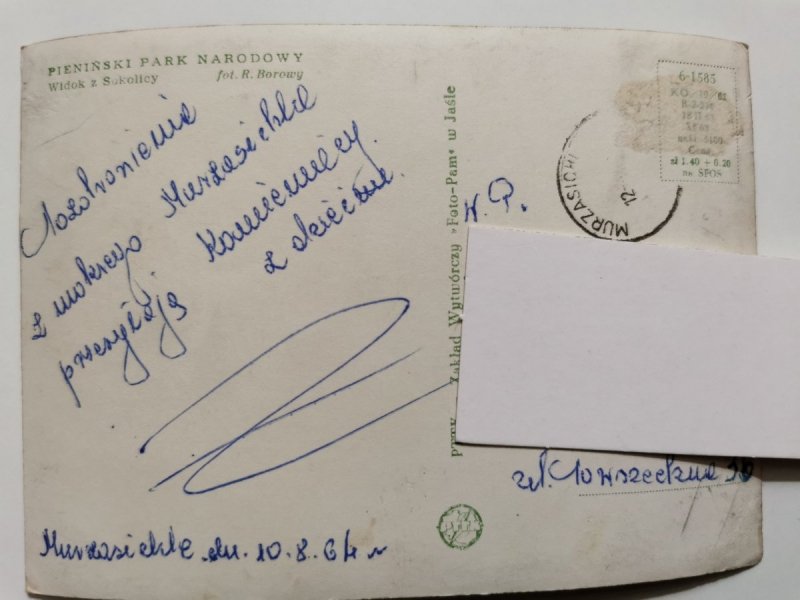 PIENIŃSKI PARK NARODOWY
Widok z Sokolicy fot. R. Borowy
Pozdrowienia
z mokrego Murzasichla
przesyłają Kamieniccy
z dziećmi.
Murzasichle dn. 10.8.64 r
Zakład Wytwórczy "Foto-Pam" w Jaśle
6-1585
KO
zł 1.40 + 0.20
na SFOS
MURZASICHL
W. P.
ul. Powszechna